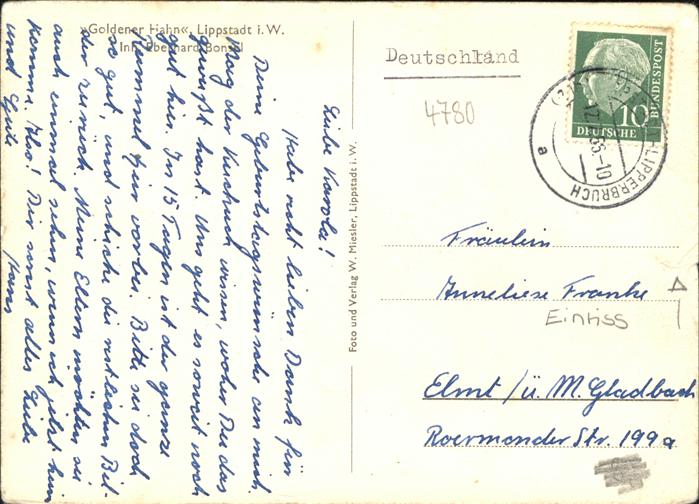 »Goldener Hahn«, Lippstadt i. W.
Inh. Eberhard Bonsel
Liebe Karola!
Habe recht lieben Dank für
Deine Geburtstagswünsche an mich.
Mag der Kuckuck wissen, woher Du das
gewußt hast. Uns geht es soweit noch
gut hier. In 15 Tagen ist der ganze
Rummel hier vorbei. Bitte sei doch
so gut, und schicke die restlichen Bil-
der zurück. Meine Eltern möchten sie
auch einmal sehen, wenn ich jetzt heim
komme. Also! Dir sonst alles Liebe
und Gute
Hans
Foto und Verlag W. Miesler, Lippstadt i. W.
Deutschland
4780
10
DEUTSCHE
BUNDESPOST
LIPPERBRUCH
a
Fräulein
Anneliese Franke
Eintiss
Elmt/ü. M. Gladbach
Roermonder Str. 199a